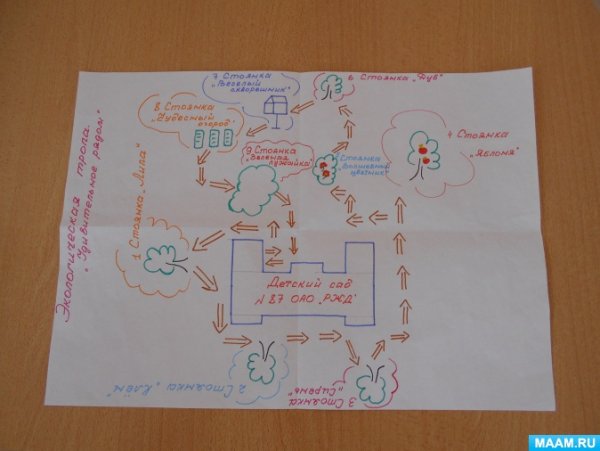 Экологическая тропа
"Удивительное рядом"
1 Стоянка "Липа"
2 Стоянка "Клён"
3 Стоянка
"Сирень"
4 Стоянка
"Яблоня"
Стоянка
"Волшебный
цветник"
6 Стоянка "Дуб"
7 Стоянка
"Веселый
скворешник"
8 Стоянка
"Чудесный
огород"
9 Стоянка
"Зеленая
лужайка"
Детский сад
№ 87 ОАО "РЖД"
MAAM.RU